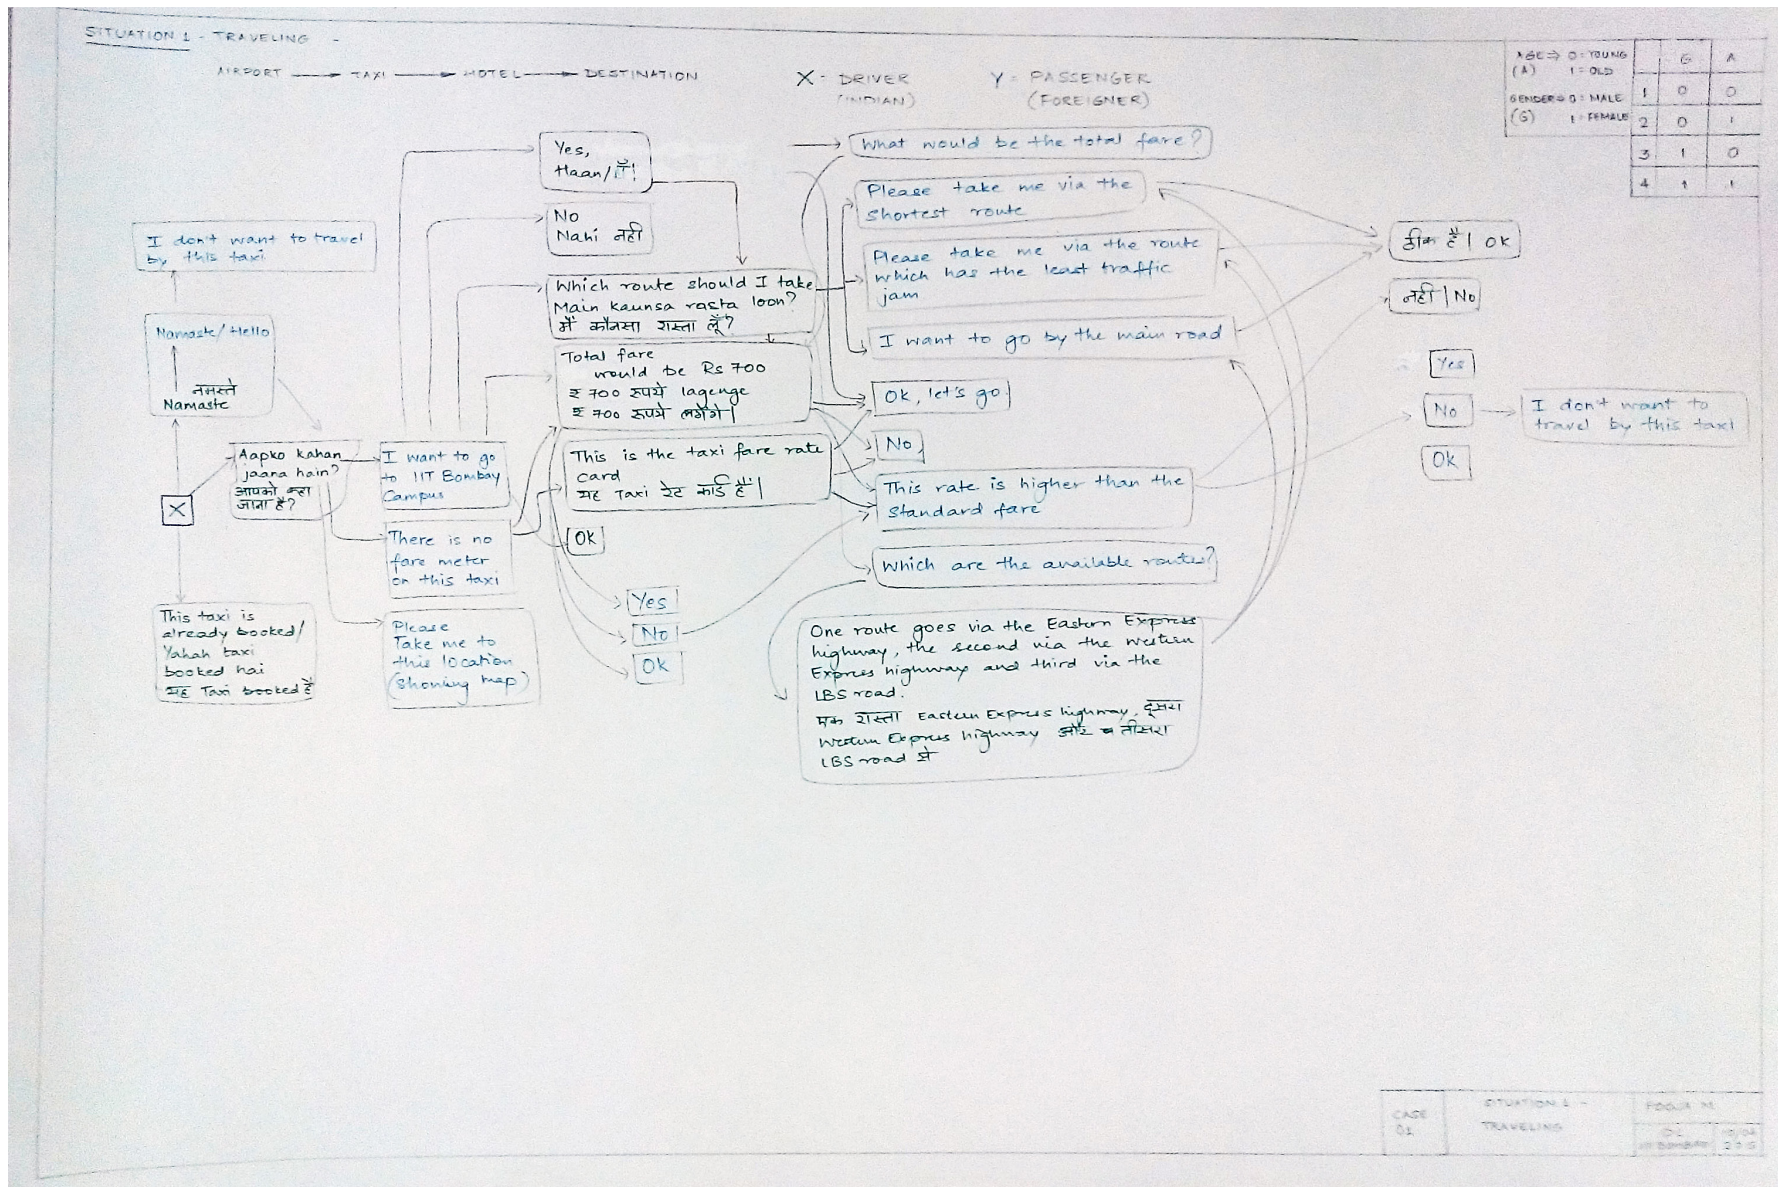 SITUATION 1 - TRAVELING -
AIRPORT → TAXI → HOTEL → DESTINATION
X - DRIVER
(INDIAN)
Y = PASSENGER
(FOREIGNER)
AGE ⇒ 0 = YOUNG
(A) 1 = OLD
GENDER ⇒ 0 = MALE
(G) 1 = FEMALE
G A
1 0 0
2 0 1
3 1 0
4 1 1
I don't want to travel
by this taxi
Namaste/Hello
नमस्ते
Namaste
X
Aapko kahan
jaana hain?
आपको कहा
जाना है?
This taxi is
already booked/
Yahah taxi
booked hai
यह Taxi booked है
I want to go
to IIT Bombay
Campus
There is no
fare meter
on this taxi
Please
Take me to
this location
(showing map)
Yes,
Haan/
No
Nahi नही
Which route should I take
Main kaunsa rasta loon?
मैं कौनसा रास्ता लूँ?
Total fare
would be Rs 700
₹ 700 रुपये lagenge
₹ 700 रुपये लगेंगे|
This is the taxi fare rate
card
यह Taxi रेट कार्ड हैं|
Ok
Yes
No
Ok
What would be the total fare?
Please take me via the
shortest route
Please take me via the route
which has the least traffic
jam
I want to go by the main road
Ok, let's go
No
This rate is higher than the
standard fare
Which are the available routes?
One route goes via the Eastern Express
highway, the second via the Western
Express highway and third via the
LBS road.
एक रास्ता Eastern Express highway, दूसरा
Western Express highway और तीसरा
LBS road से
ठीक है | OK
नही | No
Yes
No
Ok
I don't want to
travel by this taxi
CASE
01
SITUATION 1 -
TRAVELING
POOJA M